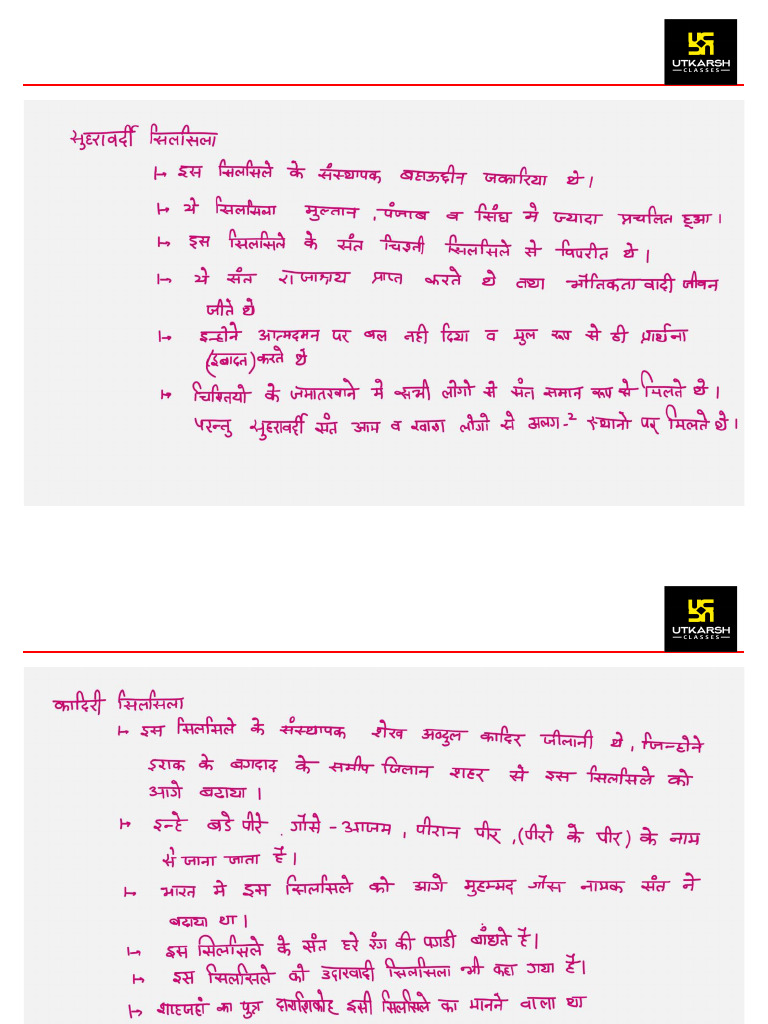 UTKARSH
CLASSES
सुहरावर्दी सिलसिला
↦ इस सिलसिले के संस्थापक बहाऊद्दीन जकारिया थे।
↦ ये सिलसिला मुल्तान, पंजाब व सिंध मे ज्यादा प्रचलित हुआ।
↦ इस सिलसिले के संत चिश्ती सिलसिले से विपरीत थे।
↦ ये संत राजाश्रय प्राप्त करते थे तथा भौतिकतावादी जीवन
जीते थे
↦ इन्होने आत्मदमन पर बल नही दिया व मुल रूप से ही प्रार्थना
(इबादत) करते थे
↦ चिश्तियो के जमातखाने मे सभी लोगो से संत समान रूप से मिलते थे।
परन्तु सुहरावर्दी संत आम व खास लोगो से अलग-2 स्थानो पर मिलते थे।
UTKARSH
CLASSES
कादिरी सिलसिला
↦ इस सिलसिले के संस्थापक शेख अब्दुल कादिर जीलानी थे, जिन्होने
इराक के बगदाद के समीप जिलान शहर से इस सिलसिले को
आगे बढाया।
↦ इन्हे बडे पीरे, गौसे-आजम, पीरान पीर, (पीरो के पीर) के नाम
से जाना जाता है।
↦ भारत मे इस सिलसिले को आगे मुहम्मद गौस नामक संत ने
बढाया था।
↦ इस सिलसिले के संत हरे रंग की पगडी बाँधते है।
↦ इस सिलसिले को उदारवादी सिलसिला भी कहा गया है।
↦ शाहजहां का पुत्र दाराशिकोह इसी सिलसिले का मानने वाला था